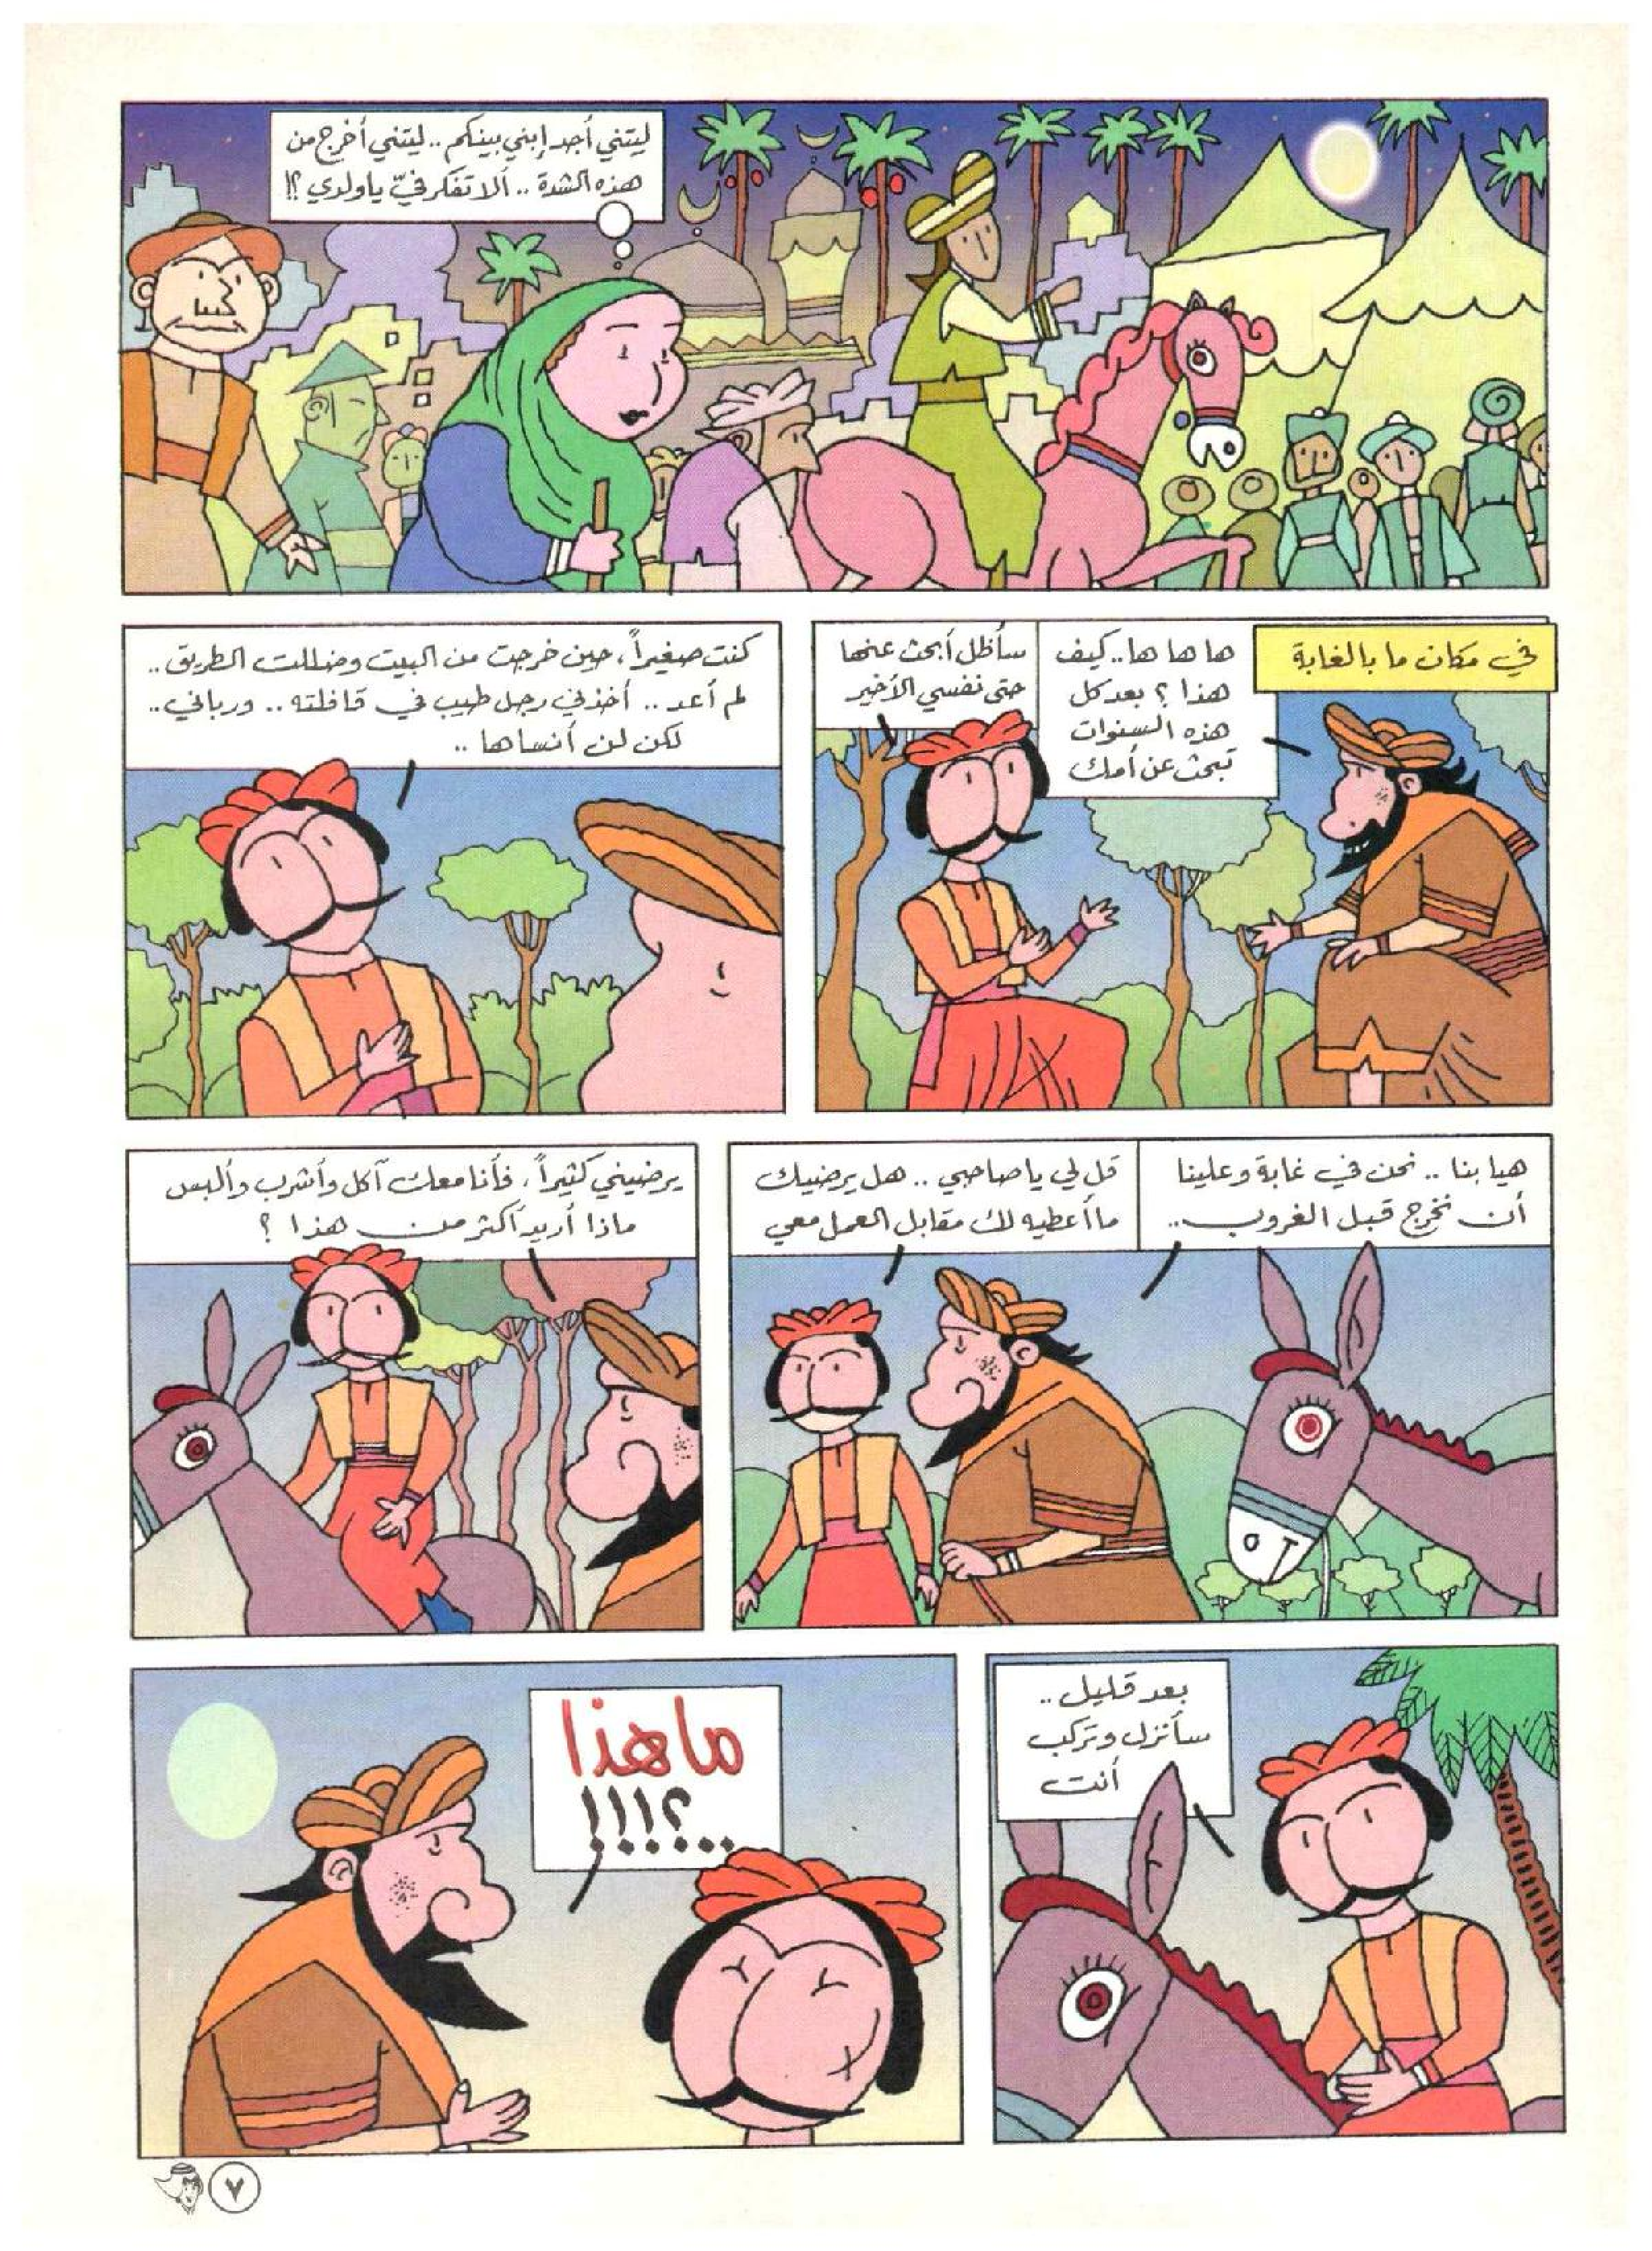 ليتني أجد إبني بينكم .. ليتني أخرج من
هذه الشدة .. ألا تفكر فيّ ياولدي ؟!
في مكان ما بالغابة
ها ها ها .. كيف
هذا ؟ بعد كل
هذه السنوات
تبحث عن أمك
سأظل أبحث عنها
حتى نفسي الأخير
كنت صغيراً، حين خرجت من البيت وضللت الطريق ..
لم أعد .. أخذني رجل طيب في قافلته .. ورباني ..
لكن لن أنساها ..
هيا بنا .. نحن في غابة وعلينا
أن نخرج قبل الغروب ..
قل لي ياصاحبي .. هل يرضيك
ما أعطيه لك مقابل العمل معي
يرضيني كثيراً، فأنا معك آكل وأشرب وألبس
ماذا أريد أكثر من هذا ؟
بعد قليل ..
سأنزل وتركب
أنت
ما هذا
..؟!!!
٧